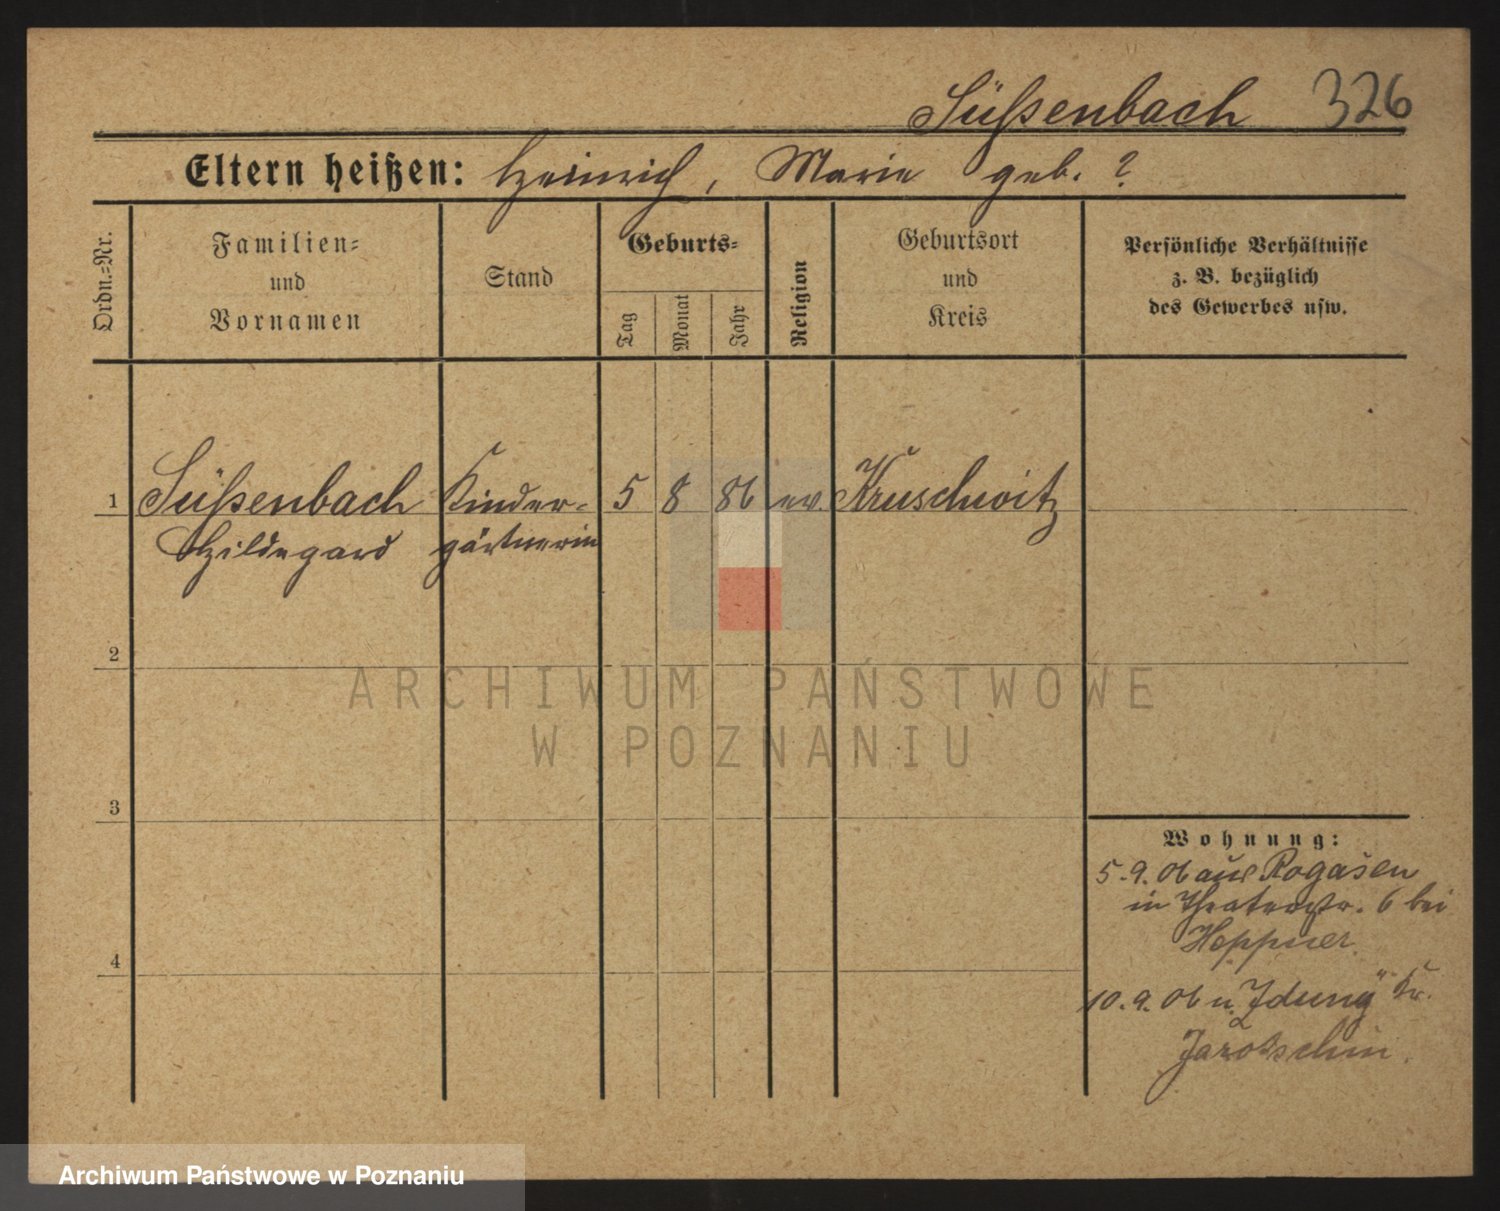 Süßenbach 326
Eltern heißen: Heinrich, Marie geb. ?
Ordn.=Nr.
Familien=
und
Vornamen
Stand
Geburts=
Tag
Monat
Jahr
Religion
Geburtsort
und
Kreis
Persönliche Verhältnisse
z. B. bezüglich
des Gewerbes usw.
1 Süßenbach Kinder= 5 8 86 ev. Kruschwitz
Hildegard gärtnerin
2
ARCHIWUM PAŃSTWOWE
W POZNANIU
3
Wohnung:
5.9.06 aus Rogasen
in Theaterstr. 6 bei
Heppner.
4
10.9.06 n. Kr.
Jarotschin.
Archiwum Państwowe w Poznaniu